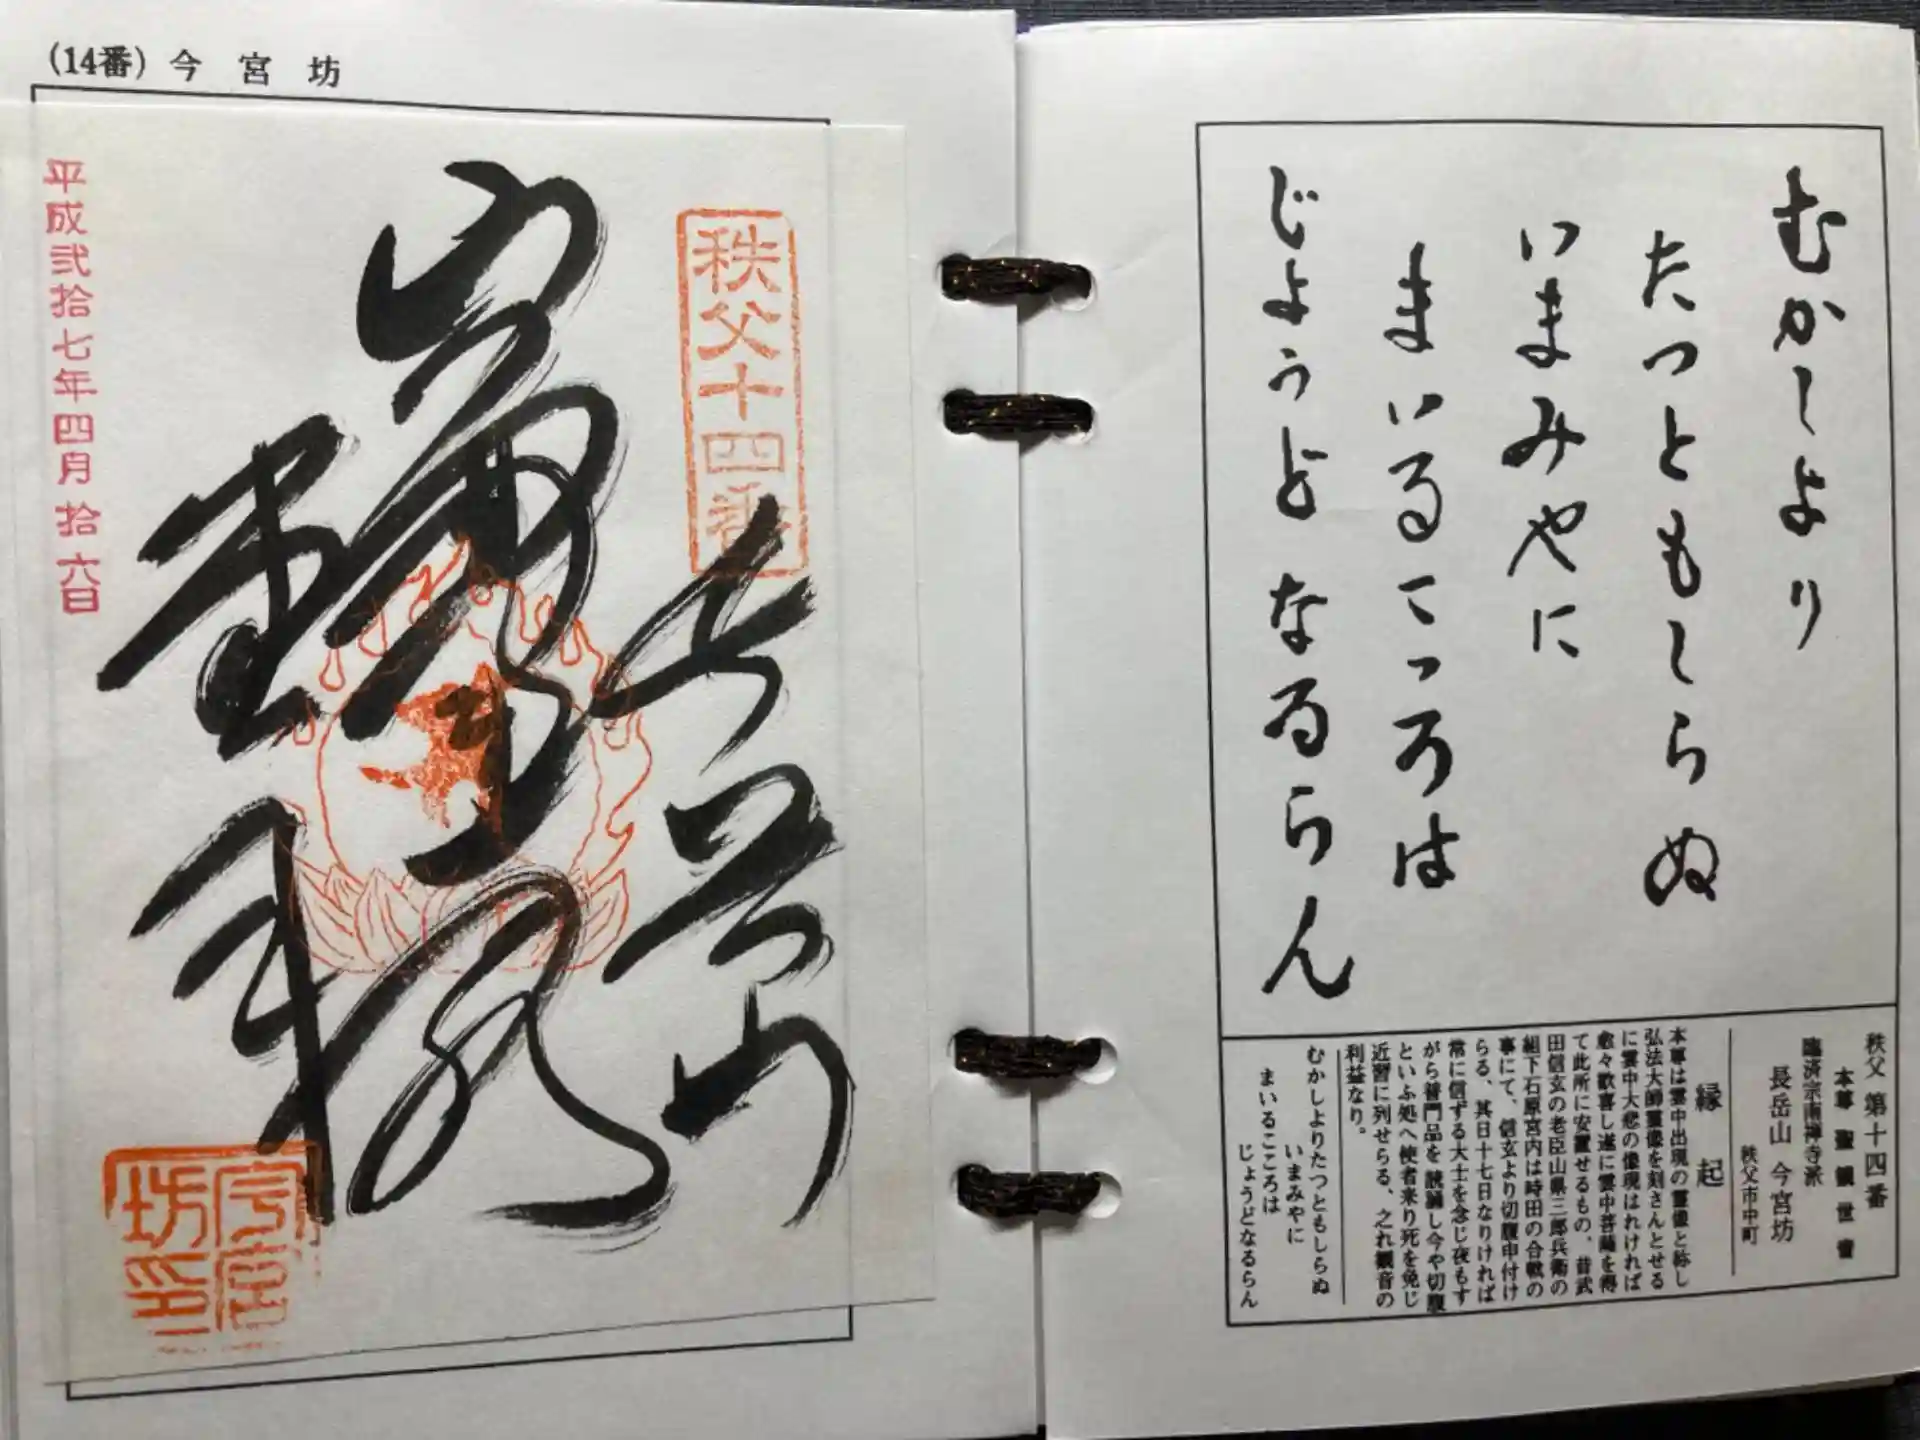 (14番) 今宮坊
秩父十四番
長岳山
平成弐拾七年四月拾六日
今宮
坊印
むかしより
たつともしらぬ
いまみやに
まいるこころは
じようどなるらん
秩父 第十四番
本尊 聖観世音
臨済宗南禅寺派
長岳山 今宮坊
秩父市中町
縁起
本尊は雲中出現の霊像と称し
弘法大師霊像を刻さんとせる
に雲中大悲の像現はれければ
愈々歓喜し遂に雲中菩薩を得
て此所に安置せるもの、昔武
田信玄の老臣山県三郎兵衛の
組下石原宮内は時田の合戦の
事にて、信玄より切腹申付け
らる、其日十七日なりければ
常に信ずる大士を念じ夜もす
がら普門品を読誦し今や切腹
といふ処へ使者来り死を免じ
近習に列せらる、之れ観音の
利益なり。
むかしよりたつともしらぬ
いまみやに
まいるこころは
じょうどなるらん